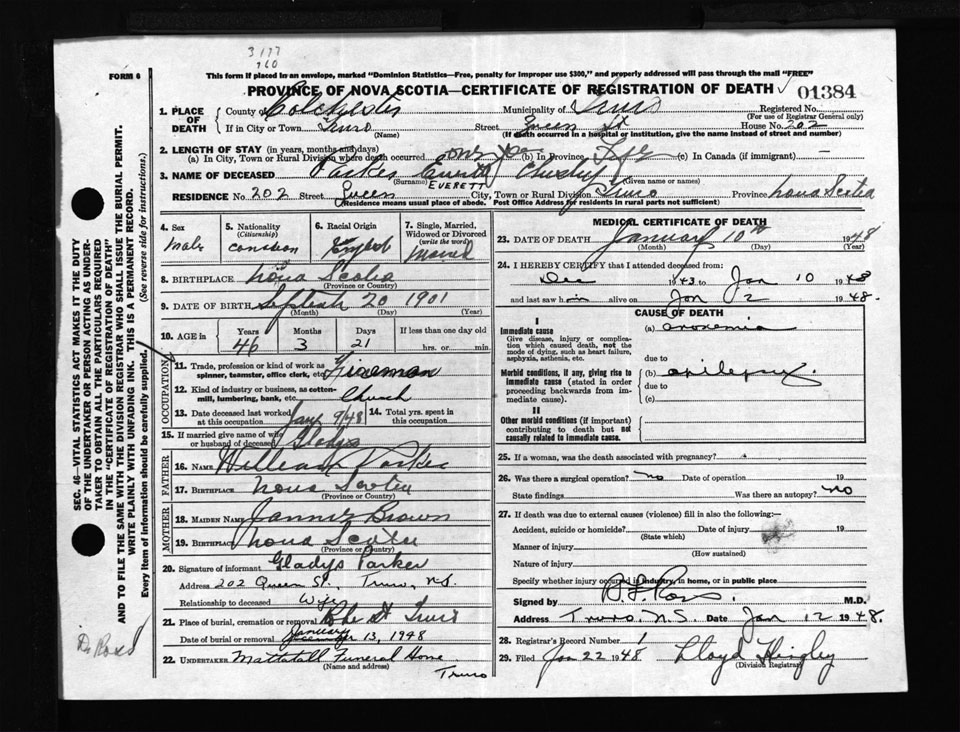 3177
760
FORM 6
This form if placed in an envelope, marked "Dominion Statistics—Free, penalty for improper use $300," and properly addressed will pass through the mail "FREE"
PROVINCE OF NOVA SCOTIA—CERTIFICATE OF REGISTRATION OF DEATH 01384
1. PLACE OF DEATH County of Colchester Municipality of Truro Registered No.
(For use of Registrar General only)
If in City or Town Truro Street Queen St House No. 202
(Name) (If death occurred in a hospital or institution, give the name instead of street and number)
2. LENGTH OF STAY (in years, months and days)
(a) In City, Town or Rural Division where death occurred one (b) in Province Life (c) In Canada (if immigrant) —
3. NAME OF DECEASED Parker Everett
(Surname) EVERETT (Given name or names)
RESIDENCE No. 202 Street Queen City, Town or Rural Division Truro Province Nova Scotia
(Residence means usual place of abode. Post Office Address for residents in rural parts not sufficient)
4. Sex
Male
5. Nationality
(Citizenship)
Canadian
6. Racial Origin
English
7. Single, Married, Widowed or Divorced
(write the word)
Married
8. BIRTHPLACE Nova Scotia
(Province or Country)
9. DATE OF BIRTH Sept 20 1901
(Month) (Day) (Year)
10. AGE in Years Months Days If less than one day old
46 3 21 hrs. or min.
OCCUPATION
11. Trade, profession or kind of work as spinner, teamster, office clerk, etc. Fireman
12. Kind of industry or business, as cotton-mill, lumbering, bank, etc. Church
13. Date deceased last worked at this occupation Jany 9/48 14. Total yrs. spent in this occupation
15. If married give name of wife or husband of deceased Gladys
FATHER
16. NAME William Parker
17. BIRTHPLACE Nova Scotia
(Province or Country)
MOTHER
18. MAIDEN NAME Brown
19. BIRTHPLACE Nova Scotia
(Province or Country)
20. Signature of informant Gladys Parker
Address 202 Queen St. Truro, N.S.
Relationship to deceased Wife
21. Place of burial, cremation or removal St Truro
Date of burial or removal January 13, 1948
22. UNDERTAKER Mattatall Funeral Home
(Name and address)
Truro
MEDICAL CERTIFICATE OF DEATH
23. DATE OF DEATH January 10th 1948
(Month) (Day) (Year)
24. I HEREBY CERTIFY that I attended deceased from:
Dec 1943 to Jan 10 1948
and last saw him alive on Jan 2 1948.
CAUSE OF DEATH
I
Immediate cause
Give disease, injury or complication which caused death, not the mode of dying, such as heart failure, asphyxia, asthenia, etc.
(a) anoxemia
due to
Morbid conditions, if any, giving rise to immediate cause (stated in order proceeding backwards from immediate cause).
(b) epilepsy.
due to
(c)
II
Other morbid conditions (if important) contributing to death but not causally related to immediate cause.
25. If a woman, was the death associated with pregnancy?
26. Was there a surgical operation? no Date of operation 19
State findings Was there an autopsy? no
27. If death was due to external causes (violence) fill in also the following:—
Accident, suicide or homicide? Date of injury 19
(State which)
Manner of injury
(How sustained)
Nature of injury
Specify whether injury occurred in industry, in home, or in public place
Signed by Ross. M.D.
Address Truro, N.S. Date Jan 12 1948.
28. Registrar's Record Number 1
29. Filed Jan 22 1948 Lloyd Hingley
(Division Registrar)
SEC. 46—VITAL STATISTICS ACT MAKES IT THE DUTY
OF THE UNDERTAKER OR PERSON ACTING AS UNDER-
TAKER TO OBTAIN ALL THE PARTICULARS REQUIRED
IN THE "CERTIFICATE OF REGISTRATION OF DEATH"
AND TO FILE THE SAME WITH THE DIVISION REGISTRAR WHO SHALL ISSUE THE BURIAL PERMIT.
WRITE PLAINLY WITH UNFADING INK. THIS IS A PERMANENT RECORD.
Every item of information should be carefully supplied. (See reverse side for instructions.)
Dr Ross